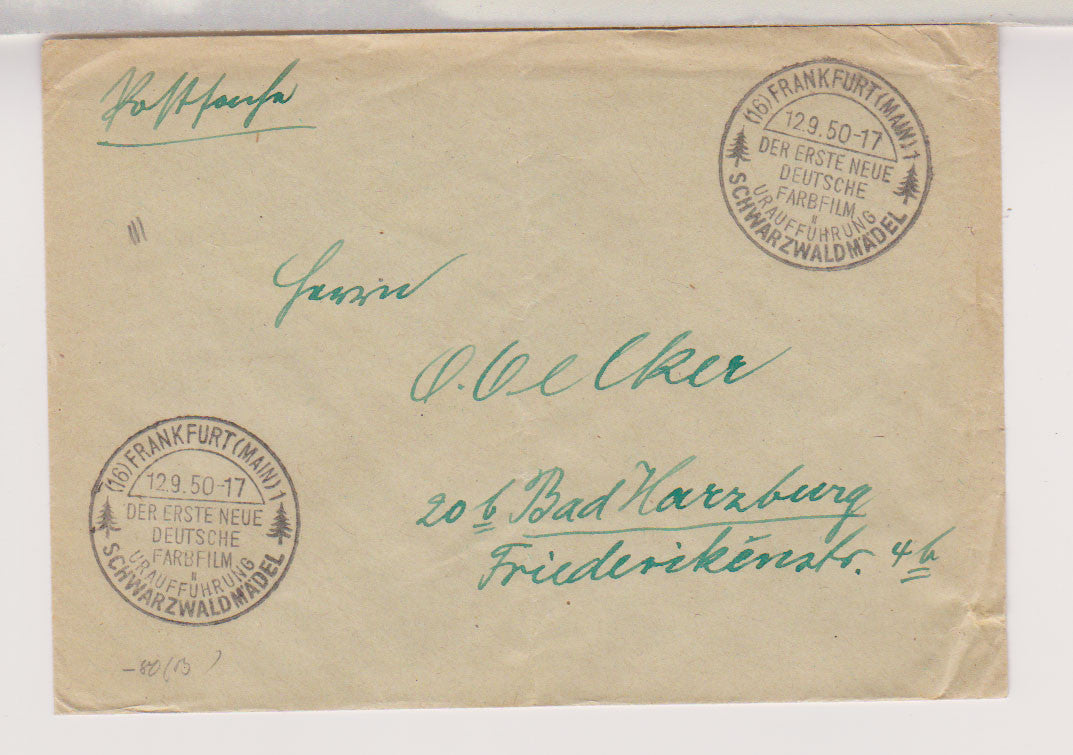 Postsache
(16) FRANKFURT (MAIN) 1
12.9.50-17
DER ERSTE NEUE
DEUTSCHE
FARBFILM
URAUFFÜHRUNG
SCHWARZWALDMÄDEL
Herrn
O. Oelker
20b Bad Harzburg
Friederikenstr. 4b
(16) FRANKFURT (MAIN) 1
12.9.50-17
DER ERSTE NEUE
DEUTSCHE
FARBFILM
URAUFFÜHRUNG
SCHWARZWALDMÄDEL